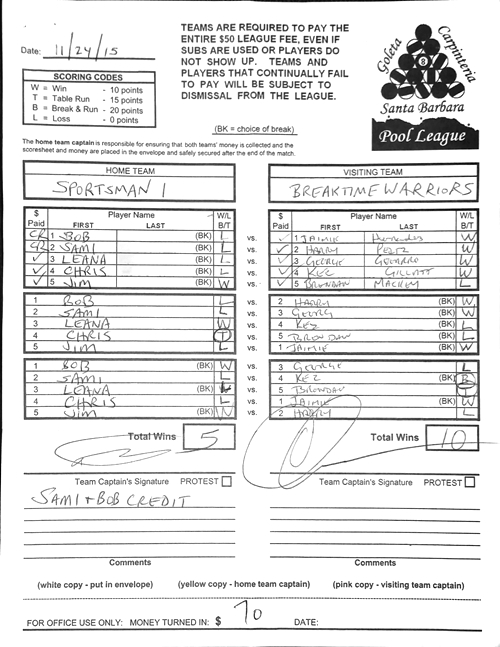 Date: 11/24/15
TEAMS ARE REQUIRED TO PAY THE
ENTIRE $50 LEAGUE FEE, EVEN IF
SUBS ARE USED OR PLAYERS DO
NOT SHOW UP. TEAMS AND
PLAYERS THAT CONTINUALLY FAIL
TO PAY WILL BE SUBJECT TO
DISMISSAL FROM THE LEAGUE.
Goleta
Carpinteria
8
Santa Barbara
Pool League
SCORING CODES
W = Win - 10 points
T = Table Run - 15 points
B = Break & Run - 20 points
L = Loss - 0 points
(BK = choice of break)
The home team captain is responsible for ensuring that both teams' money is collected and the
scoresheet and money are placed in the envelope and safely secured after the end of the match.
HOME TEAM VISITING TEAM
SPORTSMAN 1 BREAKTIME WARRIORS
$ Paid Player Name FIRST LAST W/L B/T $ Paid Player Name FIRST LAST W/L B/T
CR 1 BOB (BK) L vs. ✓ 1 JAIMIE W
2 SAMI (BK) L vs. ✓ 2 HARRY PEREZ W
✓ 3 LEANA (BK) L vs. ✓ 3 GEORGE W
✓ 4 CHRIS (BK) L vs. ✓ 4 KEZ GILLATT W
✓ 5 JIM (BK) W vs. ✓ 5 BRENDAN MACKEY L
1 BOB L vs. 2 HARRY (BK) W
2 SAMI L vs. 3 GEORG (BK) W
3 LEANA W vs. 4 KEZ (BK) L
4 CHRIS T vs. 5 BRENDAN (BK) L
5 JIM L vs. 1 JAIMIE (BK) W
1 BOB (BK) W vs. 3 GEORGE L
2 SAMI L vs. 4 KEZ (BK) B
3 LEANA (BK) vs. 5 BRENDAN
4 CHRIS L vs. 1 JAIMIE (BK) W
5 JIM (BK) W vs. 2 HARRY L
Total Wins 5 Total Wins 10
Team Captain's Signature PROTEST Team Captain's Signature PROTEST
SAMI + BOB CREDIT
Comments Comments
(white copy - put in envelope) (yellow copy - home team captain) (pink copy - visiting team captain)
FOR OFFICE USE ONLY: MONEY TURNED IN: $ 70 DATE: